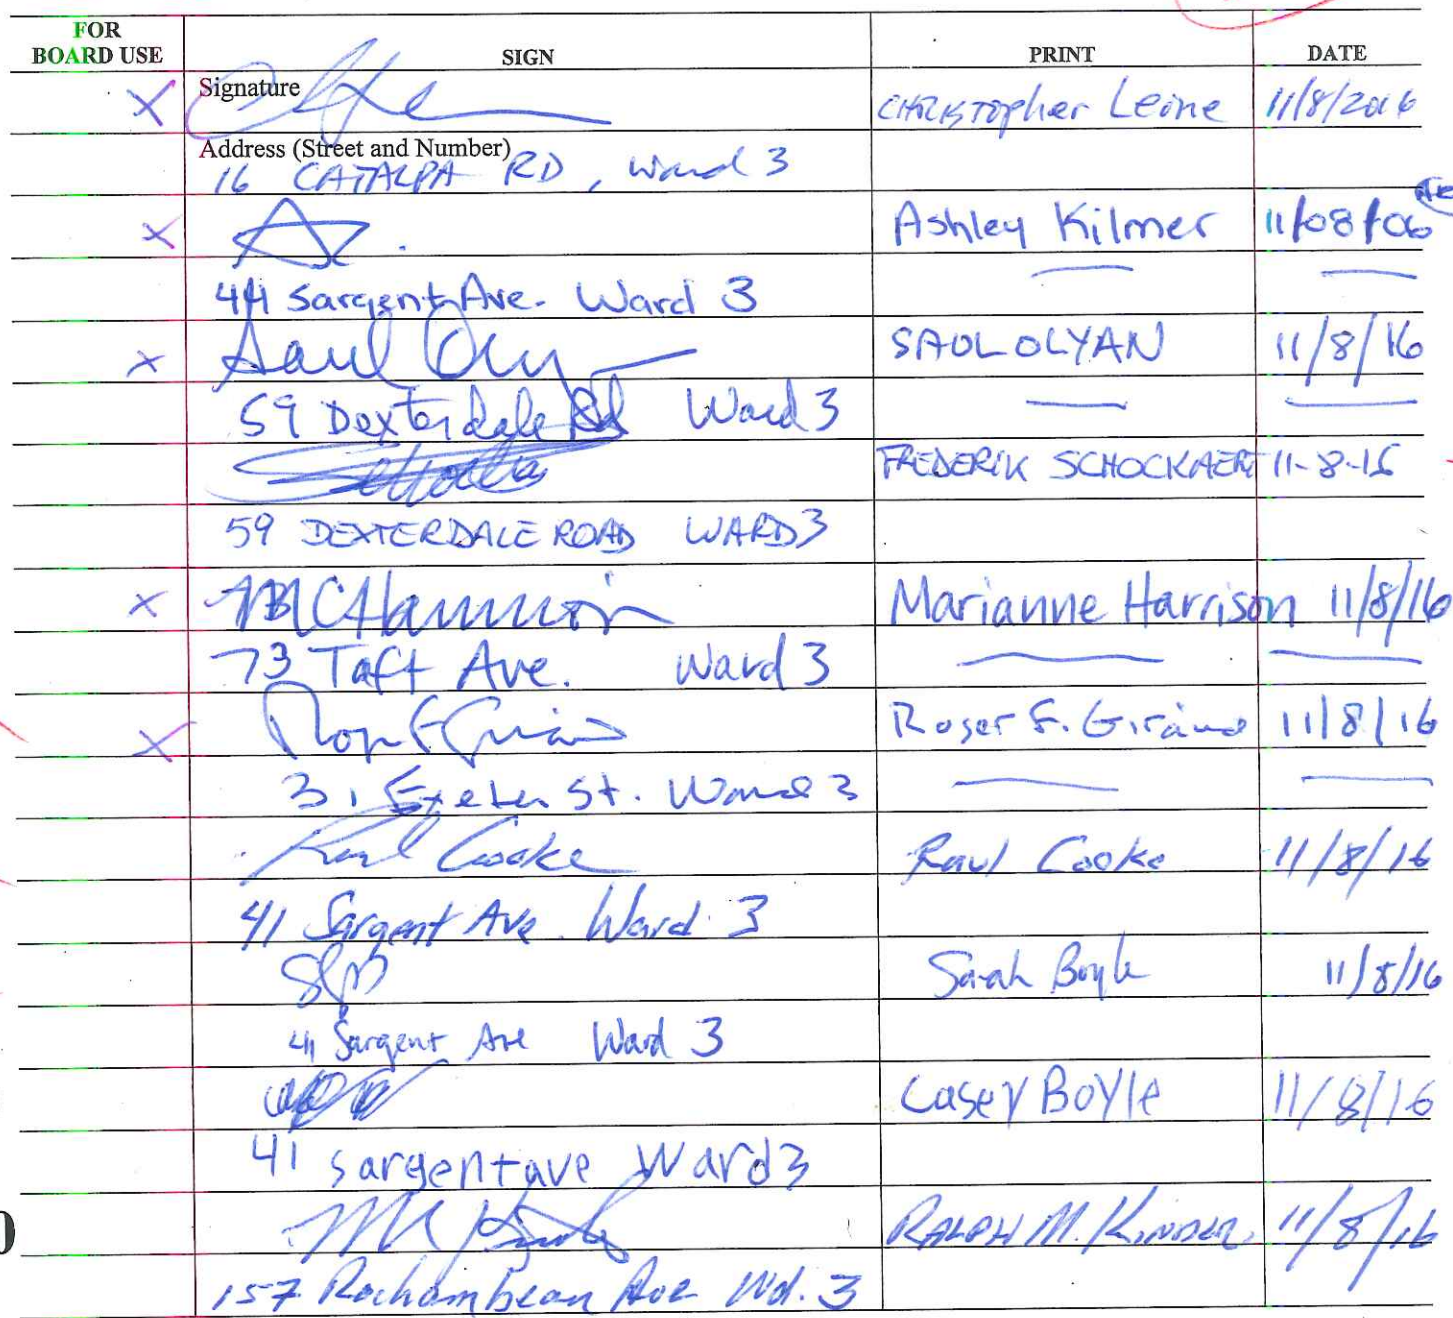 FOR BOARD USE SIGN PRINT DATE
Signature CHRISTOPher Leone 11/8/2016
Address (Street and Number)
16 CATALPA RD, Ward 3
X Ashley Kilmer 11/08/06
44 Sargent Ave. Ward 3
X Saul Olyan SAUL OLYAN 11/8/16
59 Dexterdale Rd Ward 3
FREDERIK SCHOCKAERT 11-8-16
59 DEXTERDALE ROAD WARD 3
X MCHarrison Marianne Harrison 11/8/16
73 Taft Ave. Ward 3
X Roger F. Girard 11/8/16
31 Exeter St. Ward 3
Raul Cooke Raul Cooke 11/8/16
41 Sargent Ave. Ward 3
Sarah Boyle 11/8/16
41 Sargent Ave Ward 3
Casey Boyle 11/8/16
41 Sargent ave Ward 3
RALPH M. KINDER 11/8/16
157 Rochambeau Ave Wd. 3